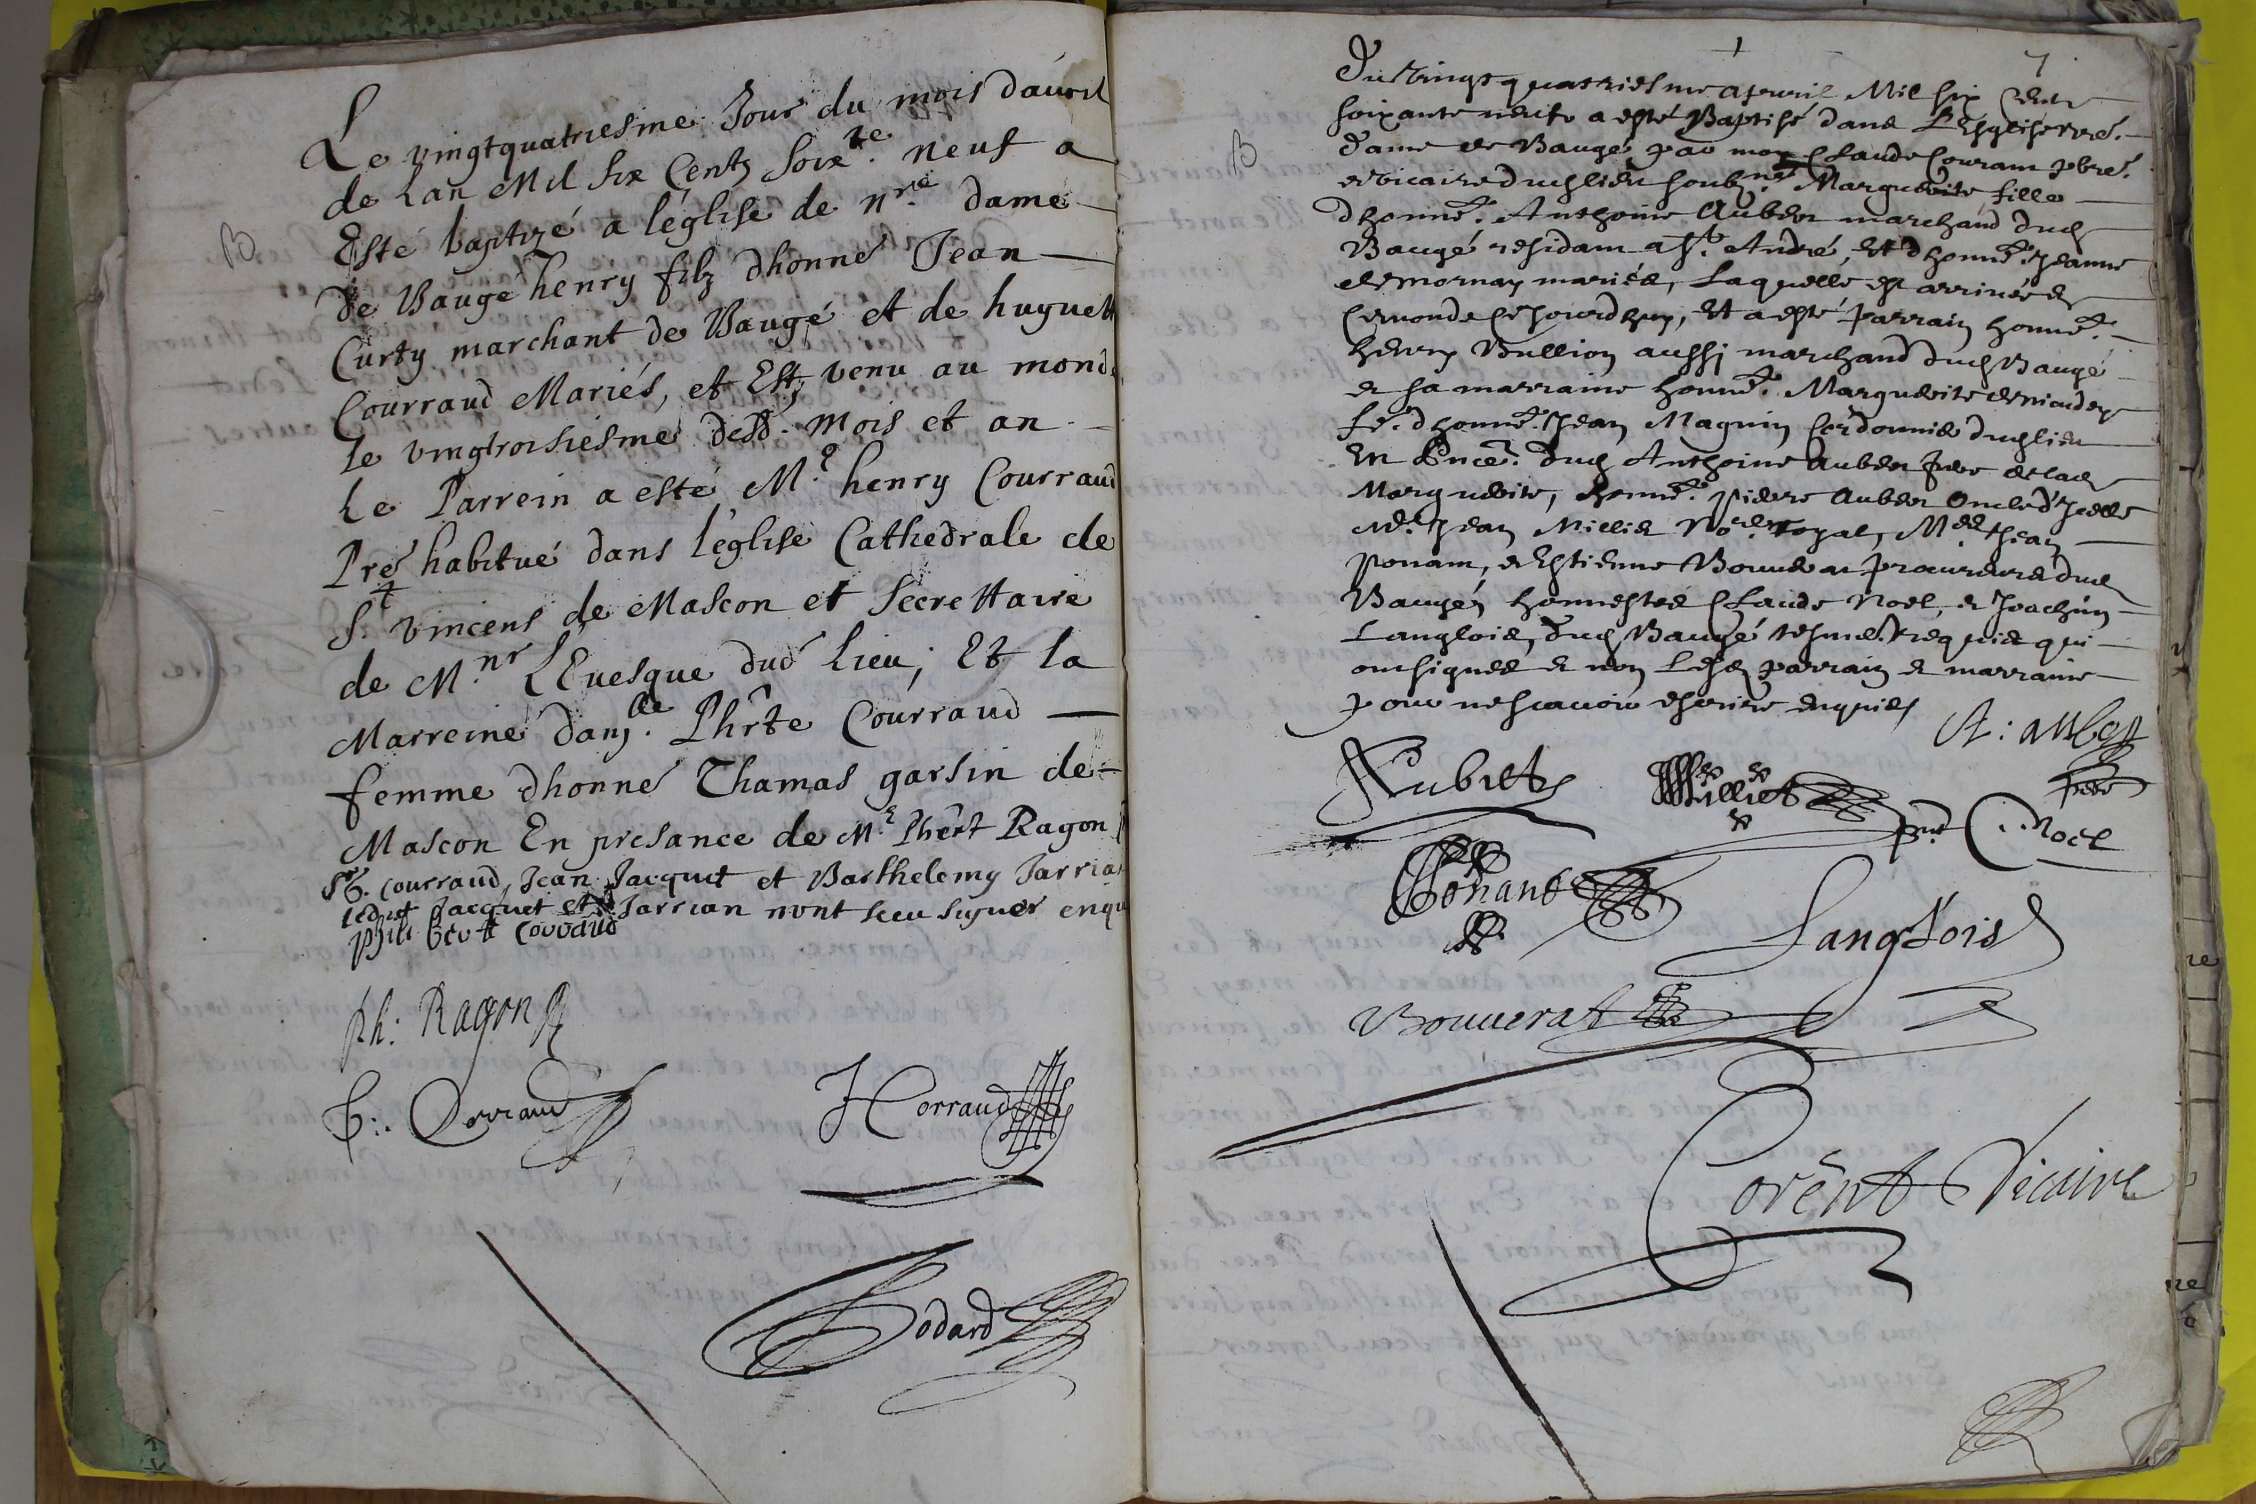 Le vingtquatriesme Jour du mois dauril
de Lan Mil six Centz soix.te neuf a
Esté baptizé a léglise de nre dame
de Baugé henry filz dhonné Jean
Curty marchant de Baugé et de huguett
Courraud Mariés, et Est venu au monde
le vingtroisiesme desd. mois et an
Le Parrein a esté M.e henry Courraud
Pre habitué dans léglise Cathedrale de
St vincens de Mascon et secrettaire
de M.nr LEuesque dud lieu; Et la
Marreine dam.lle Phrte Courraud
femme dhonné Thamas garsin de
Mascon En presance de M.e Phert Ragon
courraud, Jean Jacquet et Barthelemy Jarrian
ledit Jacquet et Jarrian nont sceu signer enqu
philibertt Couraud
ph: Ragon
Corraud
H Corraud
Bodard
7
B
B
Du Vingt quatriesme apuril Mil six Cent
soixante neufz a esté Baptisé dans LEsglise nre
dame de Baugé par mon Claude Couram pbre
et vicaire dud lieu soubzne Margueite fille
dhonne. Anthoine Aubert marchand dud
Baugé residam a St. André, Et dhonne. Jeanne
de mornay mariés, Laquelle est arriuée en
Ce monde Cejourdhuy, Et a esté parrain honne.
henry Bullion aussj marchand dud Baugé
et sa marraine honne. Margueite
fe. dhonne. Jean Magnin Cordonnier dud lieu
En Pnce. dud Anthoine Aubert pere de lad
Margueite, honne. pierre Aubert oncle d'Icelle
Me. Jean Milliet No.re royal, M.es Jean
Ponam, et Estienne Bouuerat procureurs dud
Baugé, honnestes Claude Noel, et Joachim
Langlois, dud Baugé tesmes. requis qui
ont signes et non Lesd parrain et marraine
pour ne scauoir escrire enquis
A: aubert
pere
Aubert
Milliet
pnt C. Noel
Ponant
Langlois
Bouuerat
Corent Vicaire